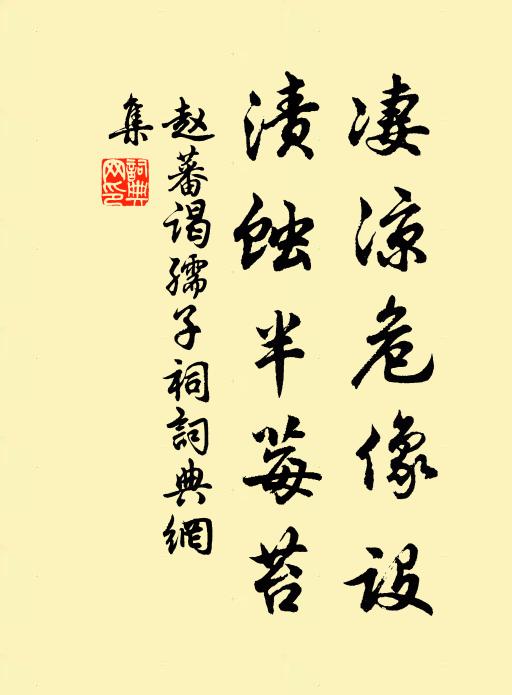 凄凉危像设
渍蚀半莓苔
赵蕃谒孺子祠詞典網
集
詞典网印